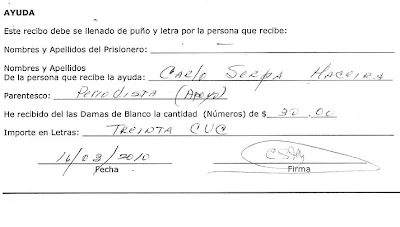 AYUDA
Este recibo debe se llenado de puño y letra por la persona que recibe:
Nombres y Apellidos del Prisionero:
Nombres y Apellidos
De la persona que recibe la ayuda: Carlo Serpa Maceira
Parentesco: Periodista (Apoyo)
He recibido del las Damas de Blanco la cantidad (Números) de $ 30.00
Importe en Letras: Treinta CUC
16/03/2010
Fecha Firma